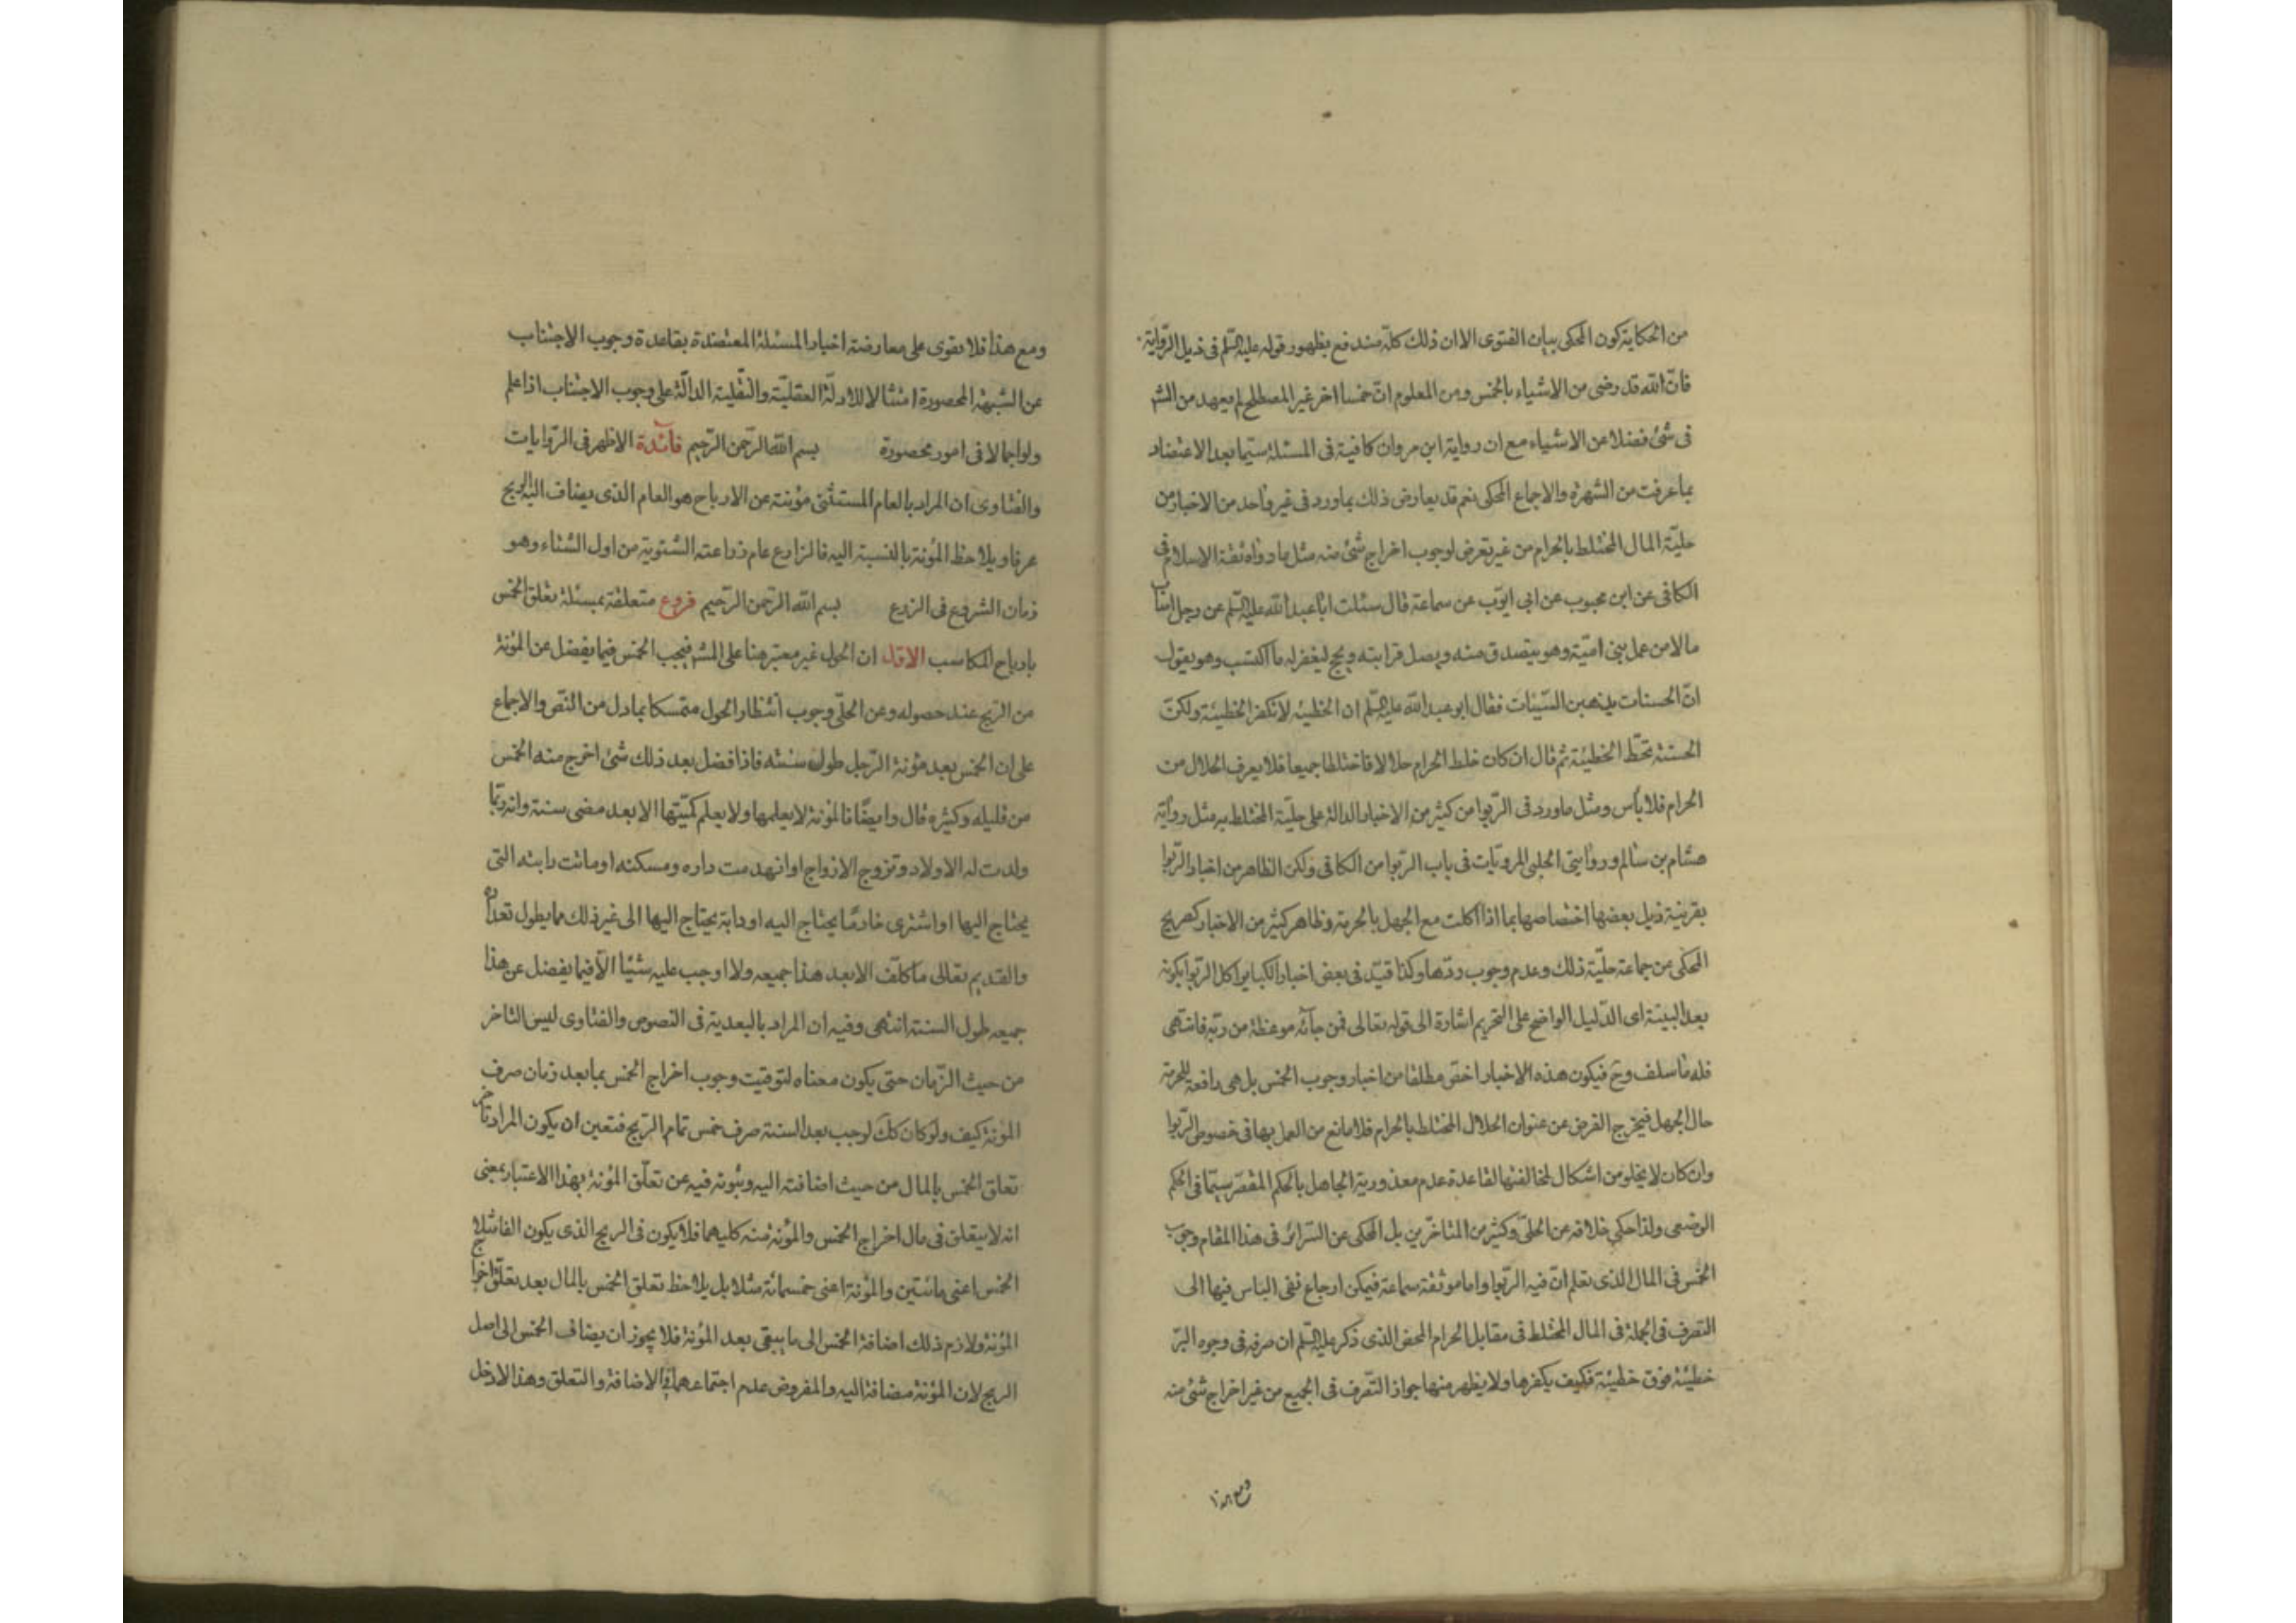 من الحكاية كون المحكى بيان الفتوى الا ان ذلك كلّه مندفع بظهور قوله عليه السّلم فى ذيل الرّواية
فانّ الله قد رضى من الاشياء بالخمس ومن المعلوم انّ خمسا اخر غير المصطلح لم يعهد من الشر
فى شئ فضلا عن الاشياء مع ان رواية ابن مروان كافية فى المسئلة سيّما بعد الاعتضاد
بما عرفت من الشهرة والاجماع المحكى نعم قد يعارض ذلك بما ورد فى غير واحد من الاخبار من
حليّة المال المختلط بالحرام من غير تعرض لوجوب اخراج شئ منه مثل ما رواه ثقة الاسلام فى
الكافى عن ابن محبوب عن ابى ايّوب عن سماعة قال سئلت ابا عبد الله عليه السّلم عن رجل اصاب
مالا من عمل بنى اميّة وهو يتصدق منه ويصل قرابته ويحج ليغفر له ما اكتسب وهو يقول
انّ الحسنات يذهبن السّيئات فقال ابو عبد الله عليه السّلم ان الخطيئة لا تكفر الخطيئة ولكنّ
الحسنة تحطّ الخطيئة ثم قال ان كان خلط الحرام حلالا فاختلطا جميعا فلا يعرف الحلال من
الحرام فلا بأس ومثل ما ورد فى الرّبوا من كثير من الاخبار الدالة على حليّة المختلط به مثل رواية
هشام بن سالم وروايتى الحلبى المرويّات فى باب الرّبوا من الكافى ولكن الظاهر من اخبار الرّبوا
بقرينة ذيل بعضها اختصاصها بما اذا اكلت مع الجهل بالحرمة وظاهر كثير من الاخبار كصريح
المحكى عن جماعة حليّة ذلك وعدم وجوب ردّها وكذا قيّد فى بعض اخبار الكبائر اكل الرّبوا بكونه
بعد البينة اى الدّليل الواضح على التحريم اشارة الى قوله تعالى فمن جائه موعظة من ربّه فانتهى
فله ما سلف وح فيكون هذه الاخبار اخصّ مطلقا من اخبار وجوب الخمس بل هى رافعة للحرمة
حال الجهل فيخرج الفرض عن عنوان الحلال المختلط بالحرام فلا مانع من العمل بها فى خصوص الرّبوا
وان كان لا يخلو من اشكال لمخالفتها لقاعدة عدم معذورية الجاهل بالحكم المقصّر سيّما فى الحكم
الوضعى ولذا حكى خلافه عن الحلّى وكثير من المتاخّرين بل المحكى عن السّرائر فى هذا المقام وجوب
الخمس فى المال الذى تعلم انّ فيه الرّبوا واما موثقة سماعة فيمكن ارجاع نفى الباس فيها الى
التصرف فى الجملة فى المال المختلط فى مقابل الحرام المحض الذى ذكر عليه السّلم ان صرفه فى وجوه البرّ
خطيئة فوق خطيئة فكيف يكفرها ولا يظهر منها جواز التّصرف فى الجميع من غير اخراج شئ منه
ومع هذا
ومع هذا فلا يقوى على معارضة اخبار المسئلة المعتضدة بقاعدة وجوب الاجتناب
عن الشبهة المحصورة امتثالا للادلّة العقليّة والنّقلية الدالّة على وجوب الاجتناب اذا علم
ولو اجمالا فى امور محصورة بسم الله الرّحمن الرّحيم فائدة الاظهر فى الرّوايات
والفتاوى ان المراد بالعام المستثنى مؤنته عن الارباح هو العام الذى يضاف اليه الربح
عرفا ويلاحظ المؤنة بالنسبة اليه فالزارع عام زراعته الشتوية من اول الشتاء وهو
زمان الشروع فى الزرع بسم الله الرّحمن الرّحيم فروع متعلقة بمسئلة تعلق الخمس
بارباح المكاسب الاول ان الحول غير معتبر هنا على المش فيجب الخمس فيما يفضل عن المؤنة
من الربح عند حصوله وعن الحلّى وجوب انتظار الحول متمسكا بما دل من النّص والاجماع
على ان الخمس بعد مؤنة الرّجل طول سنته فاذا فضل بعد ذلك شئ اخرج منه الخمس
من قليله وكثيره قال وايضًا فالمؤنة لا يعلمها ولا يعلم كميّتها الا بعد مضى سنة وانه ربّما
ولدت له الاولاد وتزوج الازواج او انهدمت داره ومسكنه او ماتت دابته التى
يحتاج اليها او اشترى خادمًا يحتاج اليه او دابة يحتاج اليها الى غير ذلك مما يطول تعداده
والقديم تعالى ما كلّف الا بعد هذا جميعه ولا اوجب عليه شيئا الّا فيما يفضل عن هذا
جميعه طول السنة انتهى وفيه ان المراد بالبعدية فى النصوص والفتاوى ليس التاخر
من حيث الزّمان حتى يكون معناه لتوقيت وجوب اخراج الخمس بما بعد زمان صرف
المؤنة كيف ولو كان كك لوجب بعد السنة صرف خمس تمام الربح فتعين ان يكون المراد تاخر
تعلق الخمس بالمال من حيث اضافته اليه وثبوته فيه عن تعلّق المؤنة بهذا الاعتبار بمعنى
انه لا يتعلق فى مال اخراج الخمس والمؤنة منه كليهما فلا يكون فى الربح الذى يكون الفا مثلا
الخمس اعنى مائتين والمؤنة اعنى خمسمائة مثلا بل يلاحظ تعلق الخمس بالمال بعد تعلّق اخراج
المؤنة ولازم ذلك اضافة الخمس الى ما يبقى بعد المؤنة فلا يجوز ان يضاف الخمس الى اصل
الربح لان المؤنة مضافة اليه والمفروض عدم اجتماعهما فى الاضافة والتعلق وهذا لا دخل